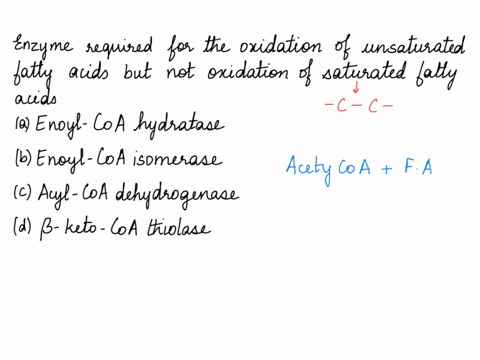 Enzyme required for the oxidation of unsaturated
fatty acids but not oxidation of saturated fatty
acids
-C-C-
(a) Enoyl-CoA hydratase
(b) Enoyl-CoA isomerase
Acety CoA + F.A
(c) Acyl-CoA dehydrogenase
(d) β-keto-CoA thiolase